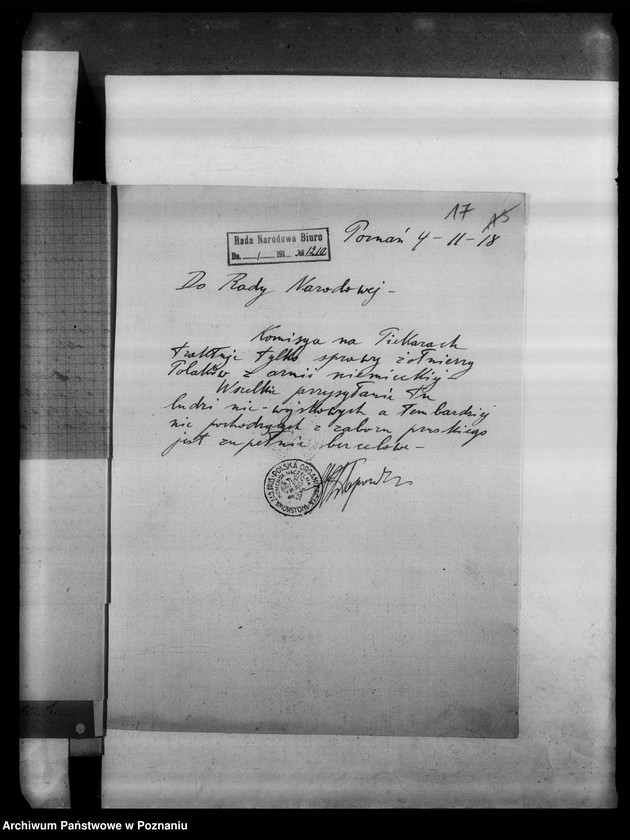 17 15
Rada Narodowa Biuro
Dn. / 191 № 1210
Poznań 4-11-18
Do Rady Narodowej –
Komisya na Piekarach
traktuje tylko sprawy żołnierzy
Polaków z armii niemieckiej –
Wszelkie przysyłanie tu
ludzi nie-wojskowych a tembardziej
nie pochodzących z zaboru pruskiego
jest zupełnie bezcelowe –
POLSKA ORGANIZ
WOJSKOWA
KOMENDA NACZELNA
Archiwum Państwowe w Poznaniu